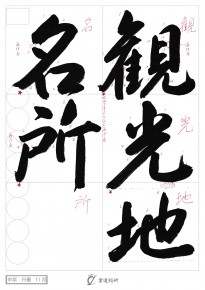 観光地
名所
観
光
地
名
所
中学 行書 11月
書道教研